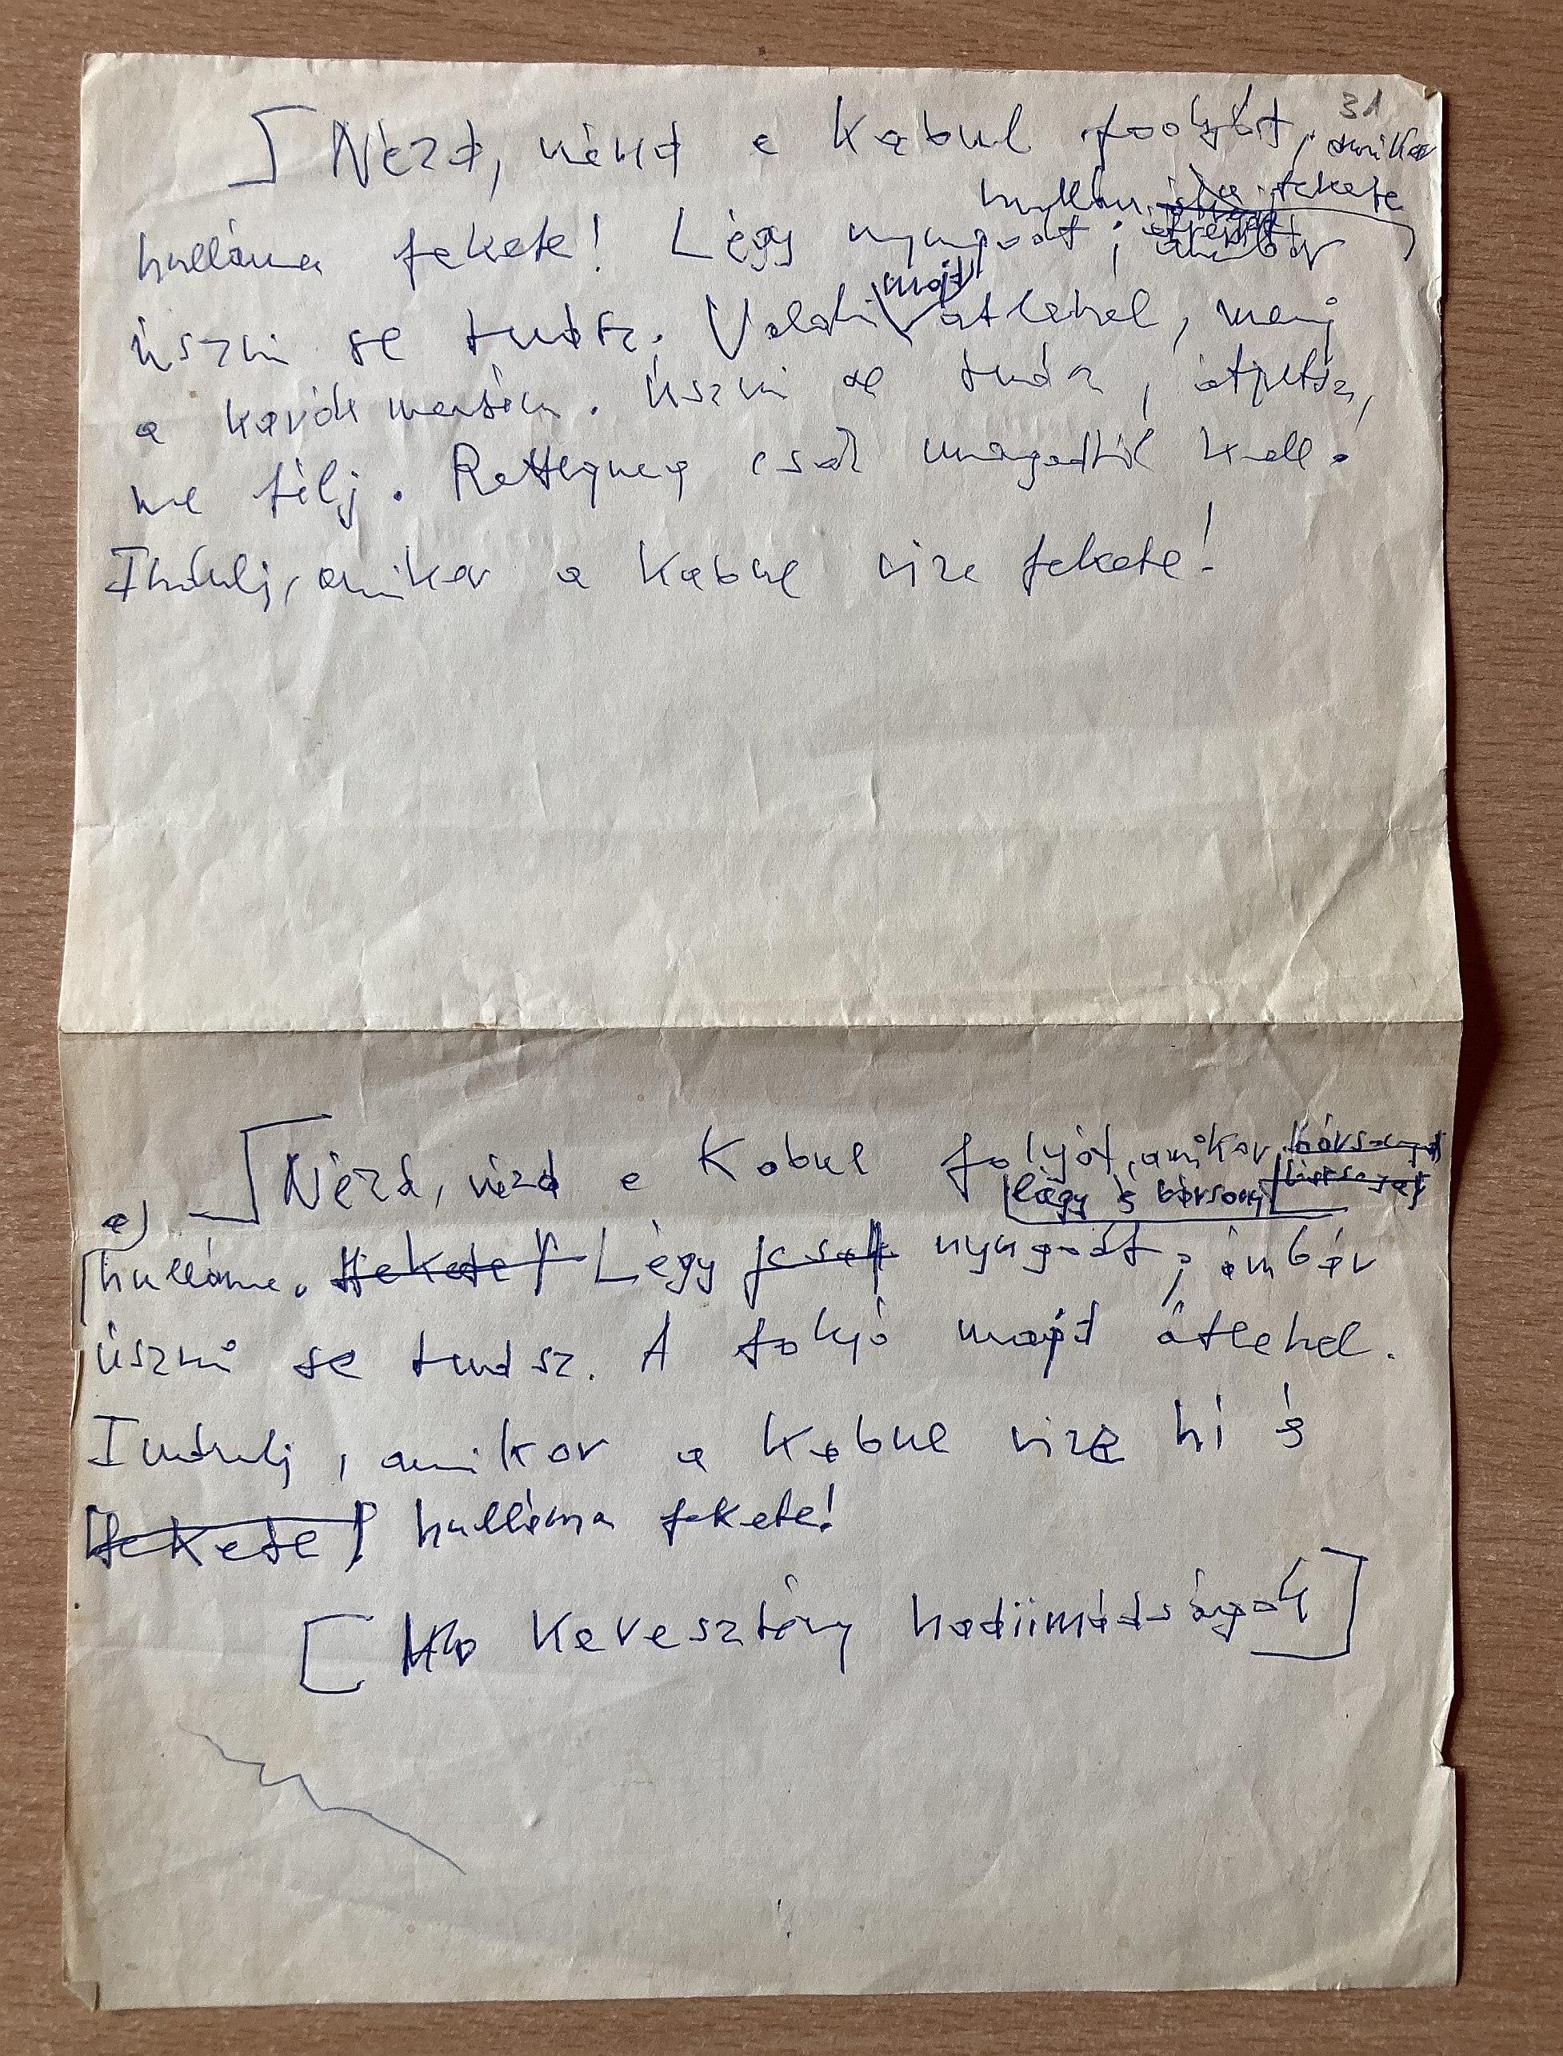 31
Nézd, nézd a Kabul folyót, amikor
hullám fekete
hulláma fekete! Légy nyugodt; ámbár
majd
úszni se tudsz. Valaki átlehel, menj
a karók mentén. Úszni se tudsz, átjutsz,
ne félj. Rettegned csak magadtól kell.
Indulj, amikor a Kabul vize fekete!
Nézd, nézd a Kabul folyót, amikor bársonyos
a) lágy s bársony
hulláma. fekete! Légy csak nyugodt; ámbár
úszni se tudsz. A folyó majd átlehel.
Indulj, amikor a Kabul vize hí s
fekete! hulláma fekete!
[Kevesztény hadiimádságok]